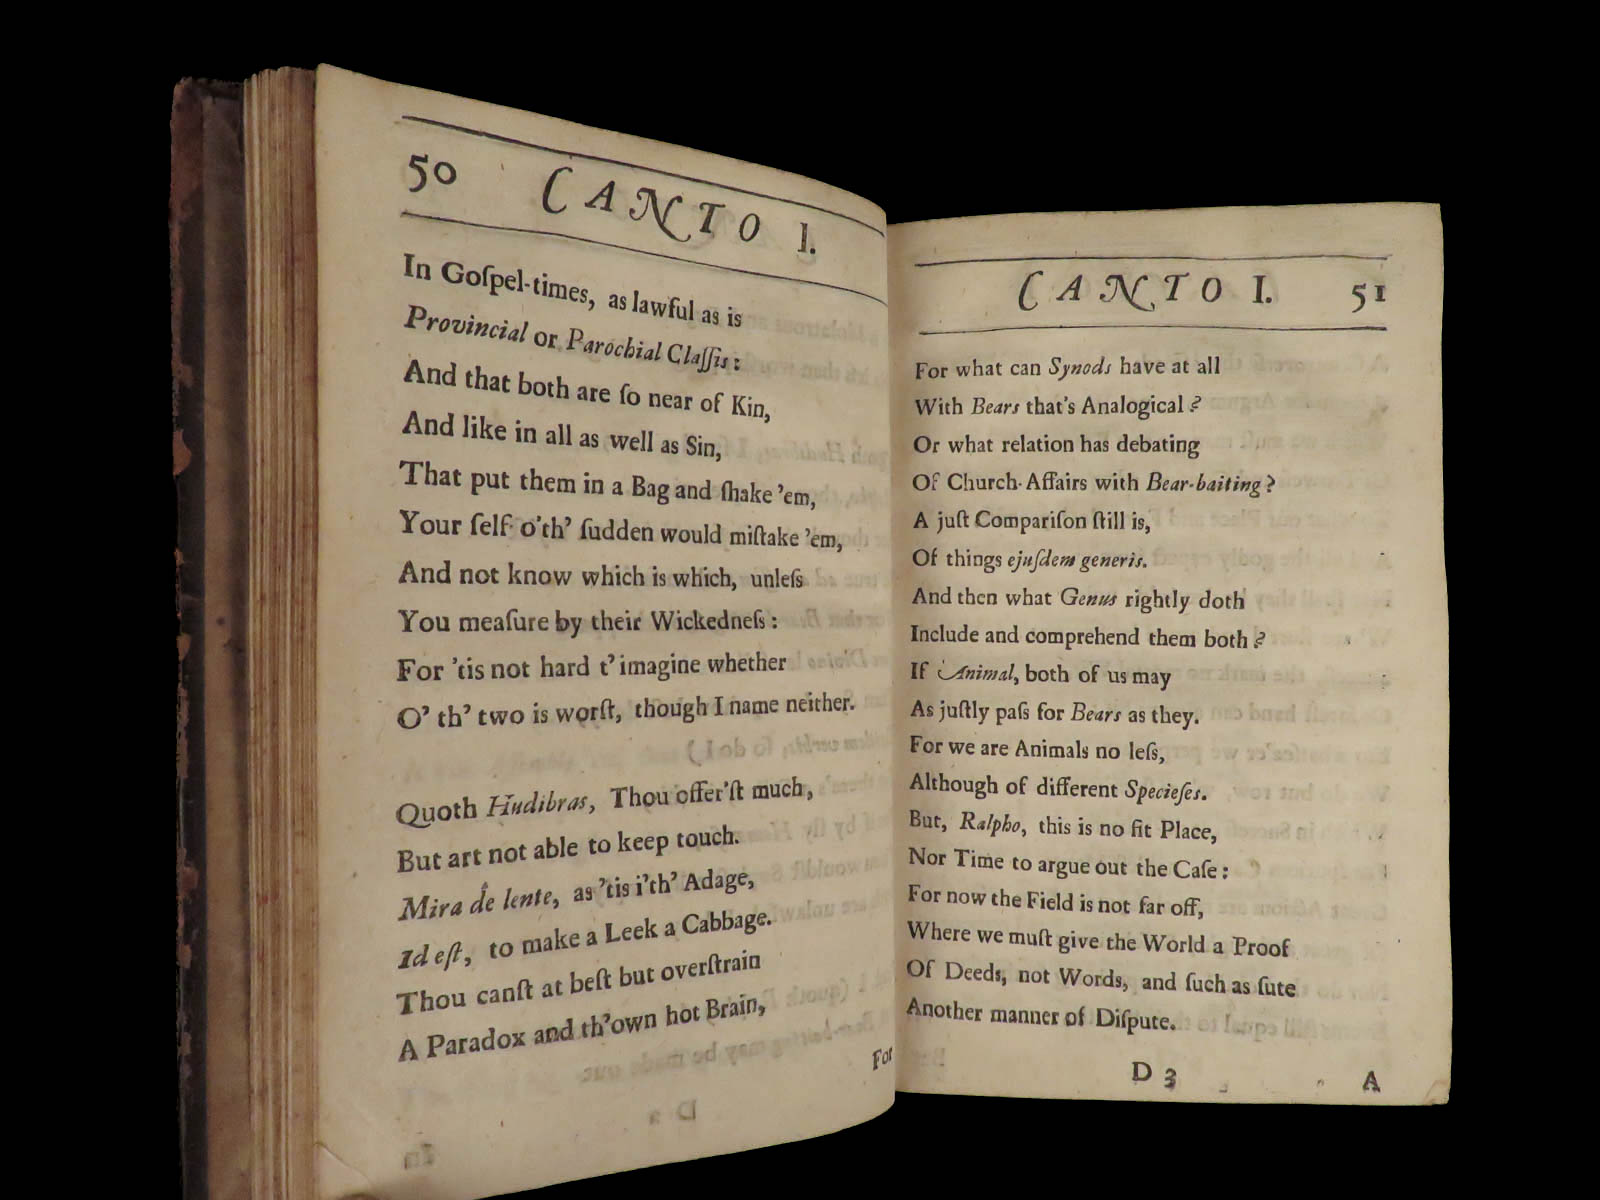 50 CANTO I.
In Goſpel-times, as lawful as is
Provincial or Parochial Claſſis:
And that both are ſo near of Kin,
And like in all as well as Sin,
That put them in a Bag and ſhake 'em,
Your ſelf o'th' ſudden would miſtake 'em,
And not know which is which, unleſs
You meaſure by their Wickedneſs:
For 'tis not hard t' imagine whether
O' th' two is worſt, though I name neither.
Quoth Hudibras, Thou offer'ſt much,
But art not able to keep touch.
Mira de lente, as 'tis i'th' Adage,
Id eſt, to make a Leek a Cabbage.
Thou canſt at beſt but overſtrain
A Paradox and th'own hot Brain,
For
CANTO I. 51
For what can Synods have at all
With Bears that's Analogical?
Or what relation has debating
Of Church-Affairs with Bear-baiting?
A juſt Compariſon ſtill is,
Of things ejuſdem generis.
And then what Genus rightly doth
Include and comprehend them both?
If Animal, both of us may
As juſtly paſs for Bears as they.
For we are Animals no leſs,
Although of different Specieſes.
But, Ralpho, this is no fit Place,
Nor Time to argue out the Caſe:
For now the Field is not far off,
Where we muſt give the World a Proof
Of Deeds, not Words, and ſuch as ſute
Another manner of Diſpute.
D 3 A